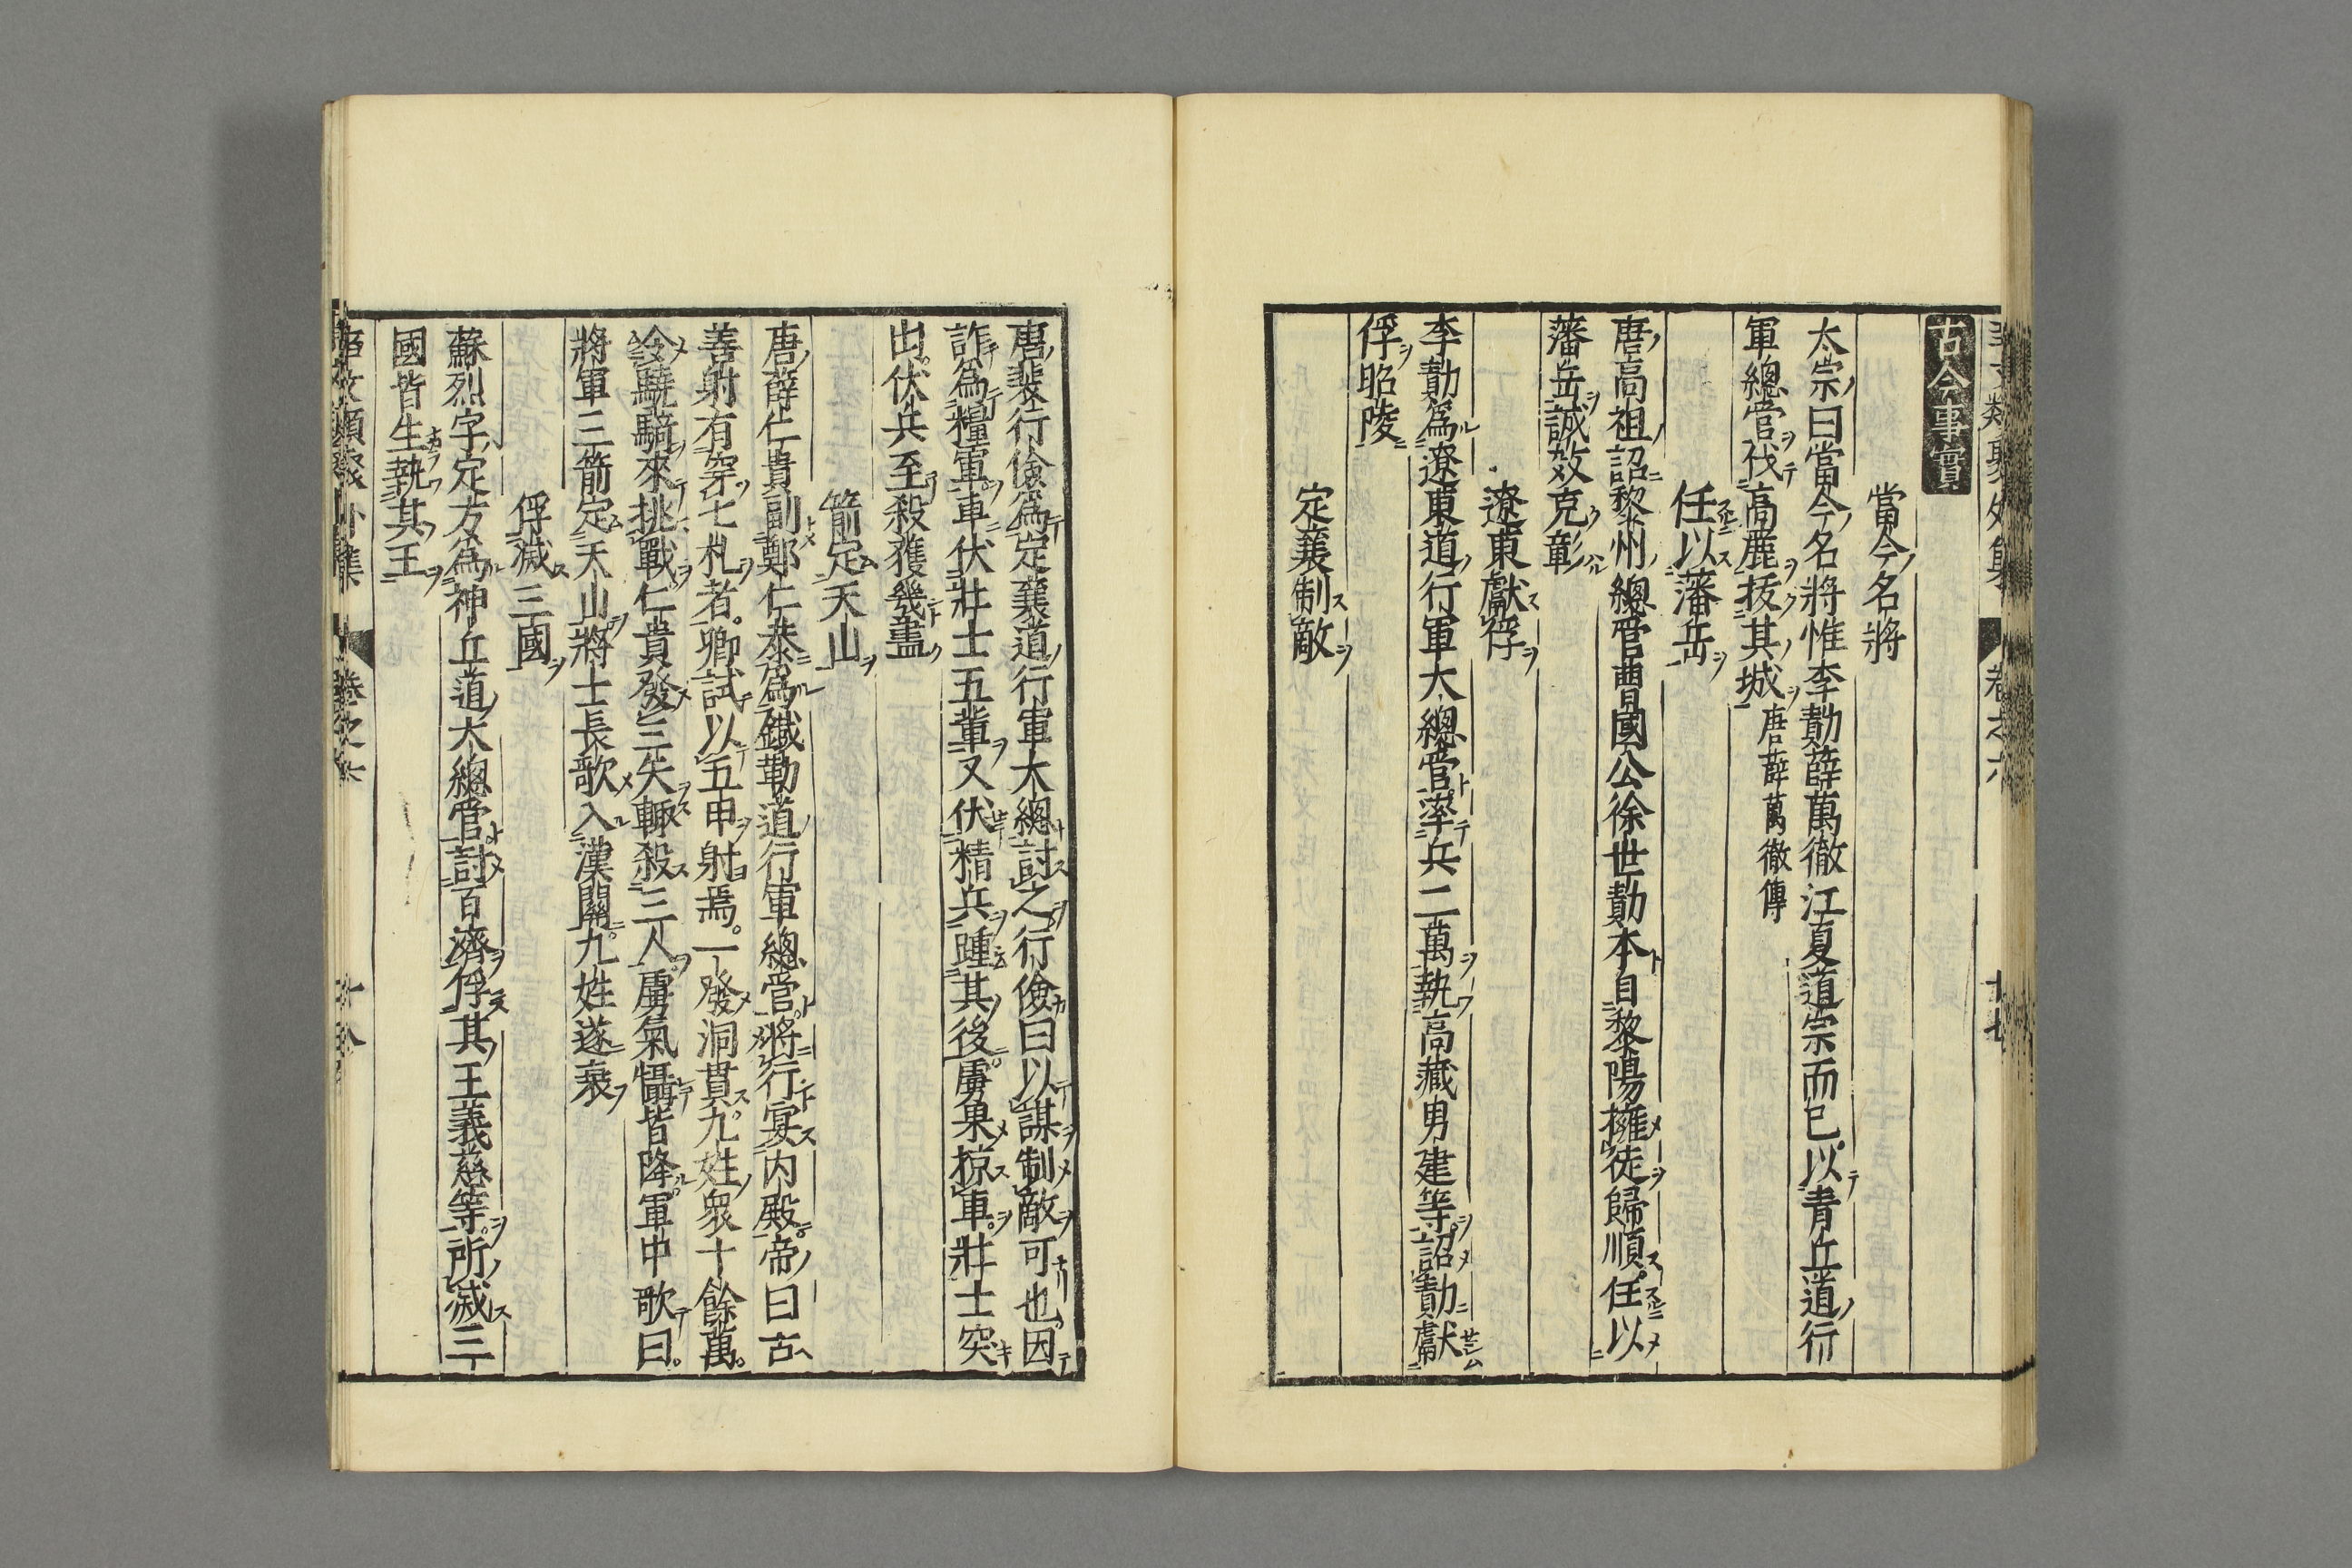 古今事實
當今名將
太宗曰當今名將惟李勣薛萬徹江夏道宗而已以青丘道行
軍總管伐高麗拔其城唐薛萬徹傳
任以藩岳
唐高祖詔黎州總管曹國公徐世勣本自黎陽擁徒歸順任以
藩岳誠效克彰
遼東獻俘
李勣爲遼東道行軍大總管率兵二萬執高藏男建等詔勣獻
俘昭陵
定襄制敵
唐裴行儉爲定襄道行軍大總討之行儉曰以謀制敵可也因
詐爲糧軍車伏壯士五輩又伏精兵踵其後虜果掠車壯士突
出伏兵至殺獲幾盡
箭定天山
唐薛仁貴副鄭仁泰爲鐵勒道行軍總管將行宴内殿帝曰古
善射有穿七札者卿試以五甲射焉一發洞貫九姓衆十餘萬
令驍騎來挑戰仁貴發三矢輒殺三人虜氣懾皆降軍中歌曰
將軍三箭定天山將士長歌入漢關九姓遂衰
俘滅三國
蘇烈字定方爲神丘道大總管討百濟俘其王義慈等所滅三
國皆生執其王